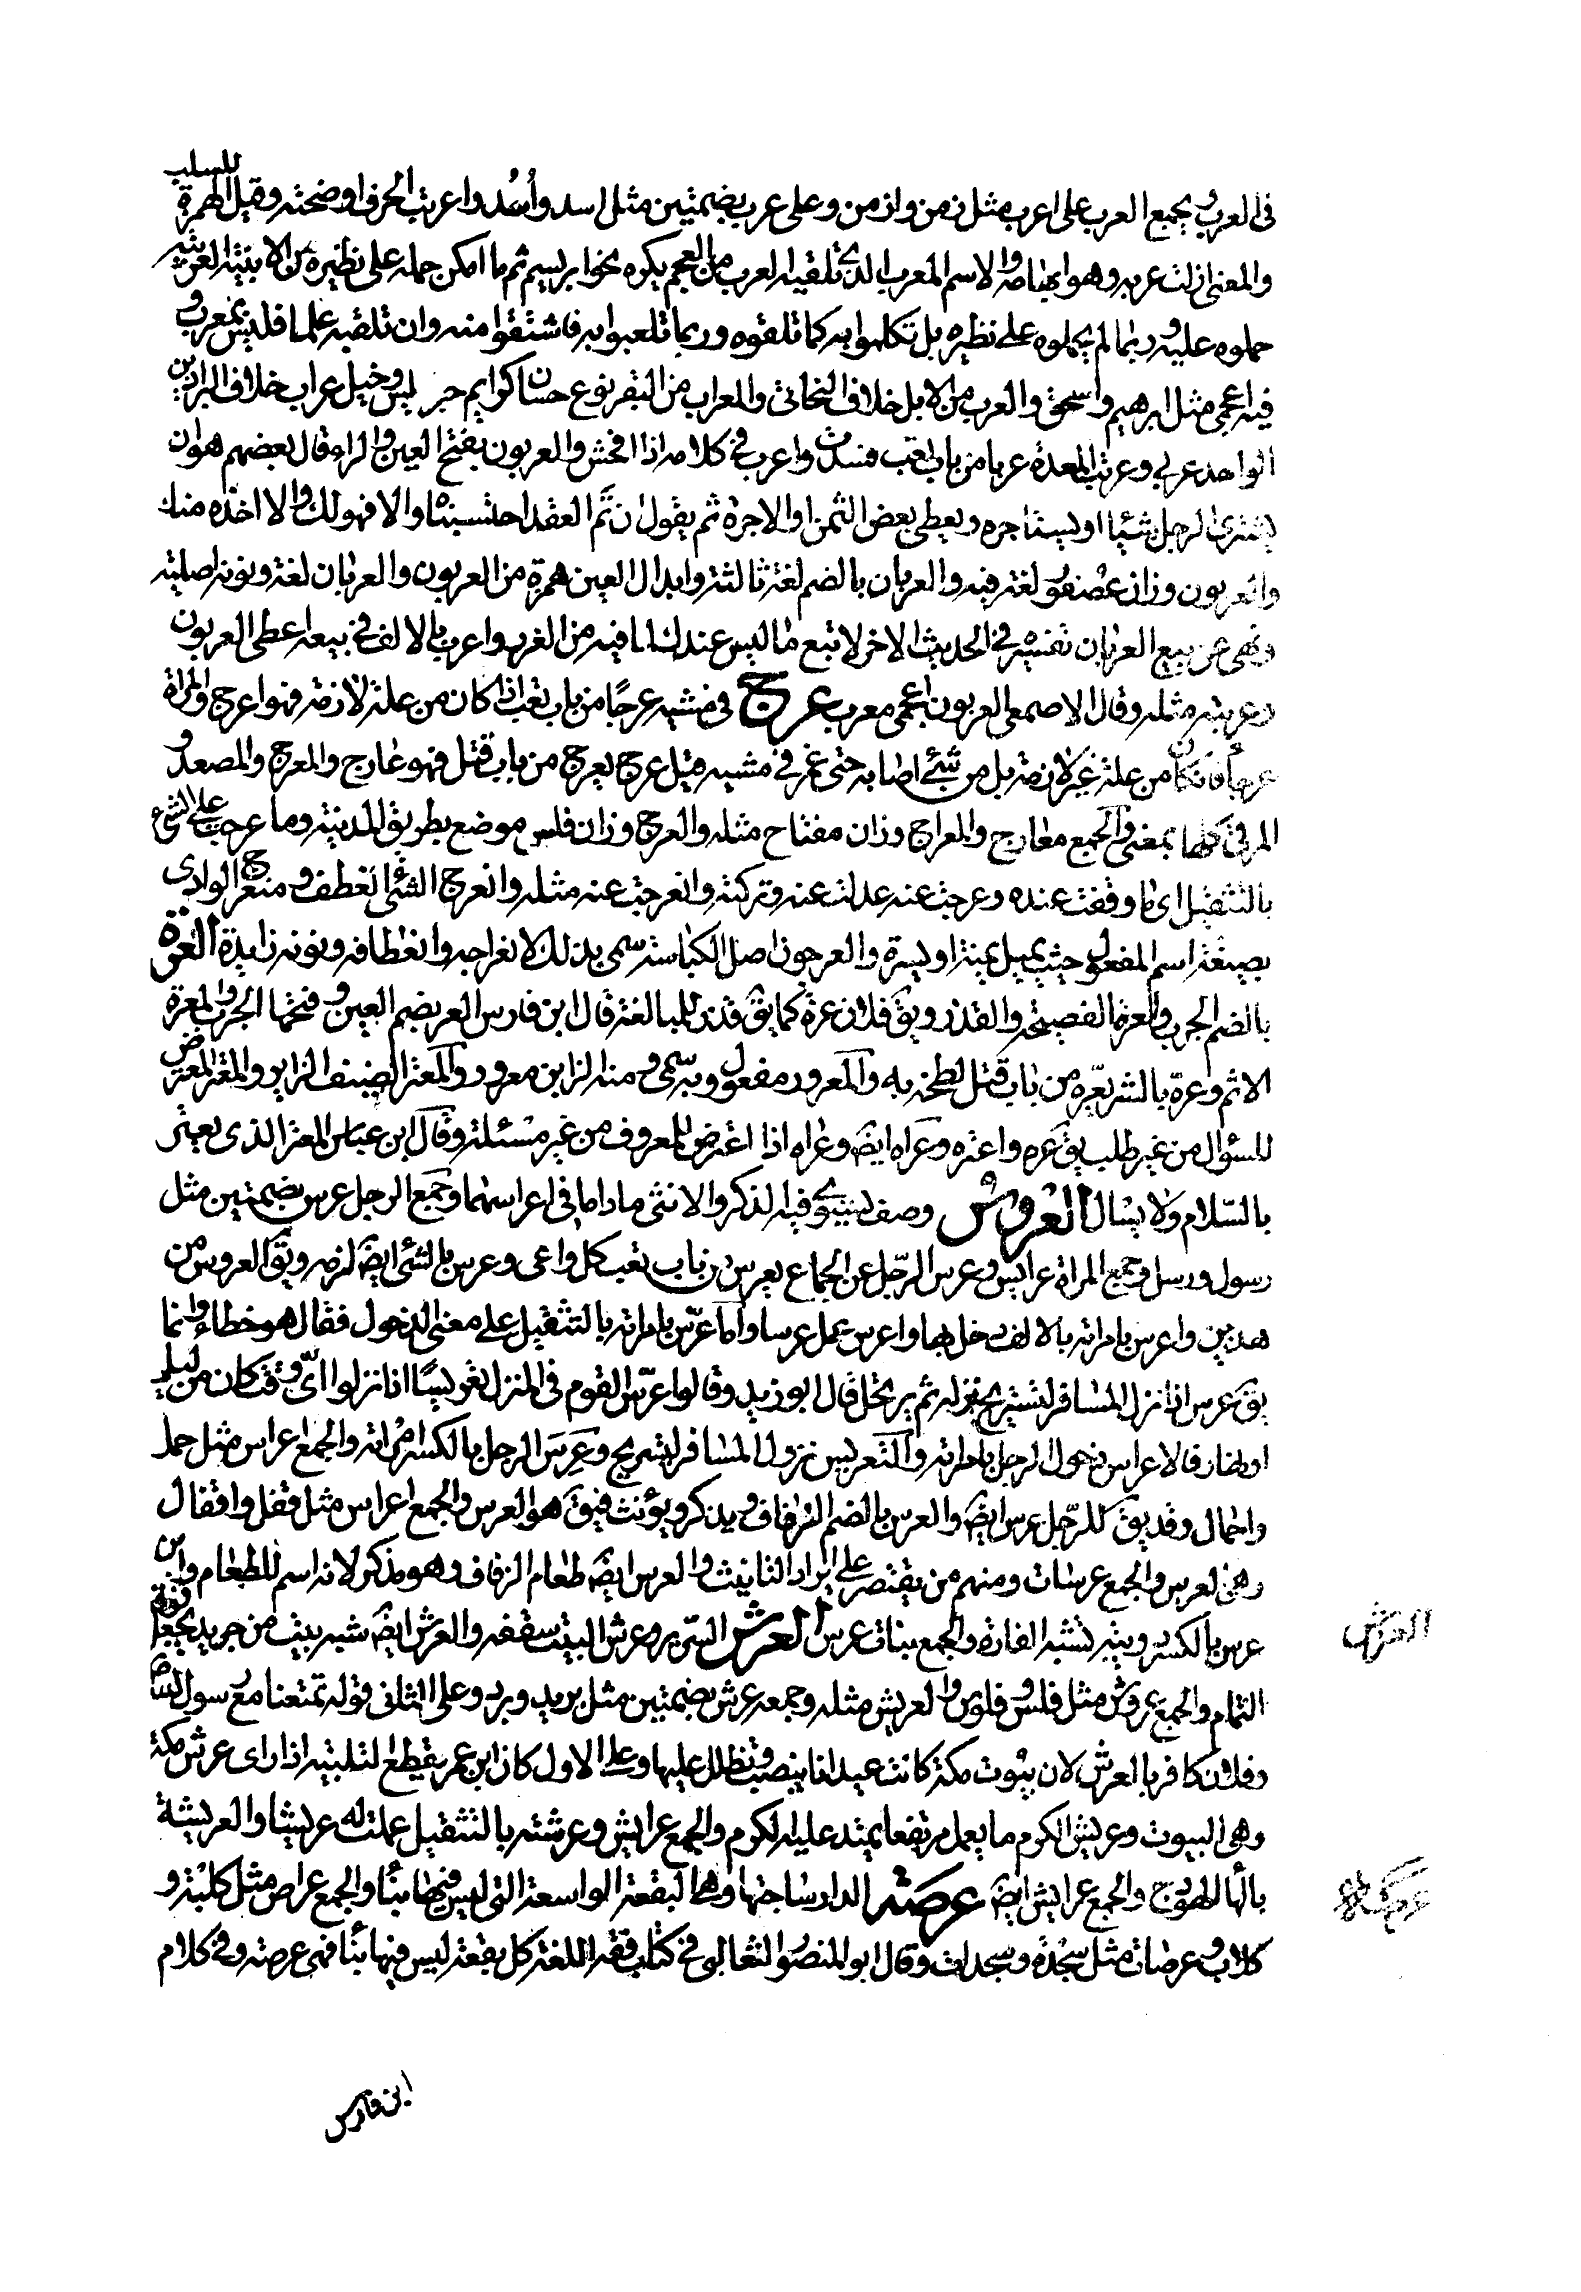 فى العرب ويجمع العرب على اعرب مثل زمن وازمن وعلى عرب بضمتين مثل اسد واُسُد واعربت الحرف اوضحته وقيل الهمزة للسلب
والمعنى ازلت عربه وهو ابهامه والاسم المعرب الذى تلقيه العرب من العجم نكره نحو ابريسم ثم ما امكن حمله على نظيره من الابنية العربية
حملوه عليه وربما لم يحملوه على نظيره بل تكلموا به كما تلقوه وربما تلعبوا به فاشتقوا منه وان تلقيه علما فليس بمعرب و
فيه اعجمى مثل ابرهيم واسحق والعرب من الابل خلاف البخاتى والعراب من البقر نوع حسان كرايم جرد ليس وخيل عراب خلاف البراذين
الواحد عربى وعربت المعدة عربا من باب تعب فسدت واعرب فى كلامه اذا افحش والعربون بفتح العين والراء قال بعضهم هو ان
يشترى الرجل شيئا او يستاجره ويعطى بعض الثمن او الاجرة ثم يقول ان تمّ العقد احتسبناه والا فهو لك والا اخذه منك
والعربون وزان عصفور لغة فيه والعربان بالضم لغة ثالثة وابدال العين همزة من العربون والعربان لغة ونونه اصلية
ونهى عن بيع العربان تفسيره فى الحديث الاخر لا تبع ما ليس عندك لما فيه من الغرر واعرب بالالف فى بيعه اعطى العربون
وعربنه مثله وقال الاصمعى العربون اعجمى معرب عرج فى مشيه عرجًا من باب تعب اذا كان من علة لازمة فهو اعرج والمراة
عرجاء فان كان من علة غير لازمة بل من شئ اصابه حتى غمز فى مشيه قيل عرج يعرج من باب قتل فهو عارج والمعرج والمصعد و
المرقى كلها بمعنى والجمع معارج والمعراج وزان مفتاح مثله والعرج وزان فلس موضع بطريق المدينة وما عرجت على الشئ
بالتثقيل اى ما وقفت عنده وعرجت عنه عدلت عنه وتركته وانعرجت عنه مثله وانعرج الشئ انعطف ومنعرج الوادى
بصيغة اسم المفعول حيث يميل يمنة او يسرة والعرجون اصل الكباسة سمى بذلك لانعراجه وانعطافه ونونه زايدة العرة
بالضم الجرب والعرة الفضيحة والقذر ويق فلان عرة كما يق قذر للمبالغة قال ابن فارس العر بضم العين وفتحها الجرب والمعرة
الاثم وعره بالشر يعرّه من باب قتل لطخه به والمعرور مفعول وبه سمى ومنه البراء بن معرور والمعتر الضيف الزاير والمعتر المعترض
للسؤال من غير طلب يق عره واعتره وعراه ايضَ وعراه اذا اعترض للمعروف من غير مسئلة وقال ابن عباس المعتر الذى يعترى
بالسّلام ولا يسال العروس وصف يستوى فيه الذكر والانثى ما داما فى اعراسهما وجمع الرجل عرس بضمتين مثل
رسول ورسل وجمع المراة عرايس وعرس الرّجل عن الجماع يعرس من باب تعب كل واعى وعرس بالشئ ايضَ لزمه ويق العروس من
هذين واعرس بامراته بالالف دخل بها واعرس عمل عرسا واما عرّس بامراته بالتثقيل على معنى الدخول فقال هو خطاء وانما
يق عرس اذا نزل المسافر ليستريح نزله ثم يرتحل قال ابو زيد وقالوا عرّس القوم فى المنزل تعريسًا اذا نزلوا اىّ وقت كان من ليل
او نهار فالاعراس دخول الرجل بامراته والتعريس نزول المسافر ليستريح وعِرس الرجل بالكسر امراته والجمع اعراس مثل حمل
واحمال وقد يق للرّجل عرس ايضَ والعرس بالضم الزفاف ويذكر ويؤنث فيق هو العرس والجمع اعراس مثل قفل واقفال
وهى العرس والجمع عرسات ومنهم من يقتصر على ايراد التانيث والعرس ايضَ طعام الزفاف وهو مذكر لانه اسم للطعام وابن
عرس بالكسر دويبة تشبه الفارة والجمع بنات عرس العرش السّرير وعرش البيت سقفه والعرش ايضَ شبه بيت من جريد يجعل فوقه
الثمام والجمع عروش مثل فلس وفلوس والعريش مثله وجمعه عرش بضمتين مثل بريد وبرد وعلى الثانى قوله تمتعنا مع رسول الله
وفلان كافر بالعرش لان بيوت مكة كانت عيدانا ينصب وتظلل عليها وعلى الاول كان ابن عمر يقطع التلبية اذا راى عرش مكة
وهى البيوت وعريش الكرم ما يعمل مرتفعا يمتد عليه الكرم والجمع عرايش وعرشته بالتثقيل عملت له عريشا والعريشة
بالهاء الهودج والجمع عرايش ايضَ عرصة الدار ساحتها وهى البقعة الواسعة التى ليس فيها بناء والجمع عراص مثل كلبة و
كلاب وعرصات مثل سجدة وسجدات وقال ابو المنصور الثعالبى فى كتاب فقه اللغة كل بقعة ليس فيها بناء فهى عرصة وفى كلام
ابن فارس
العرش
عرصة